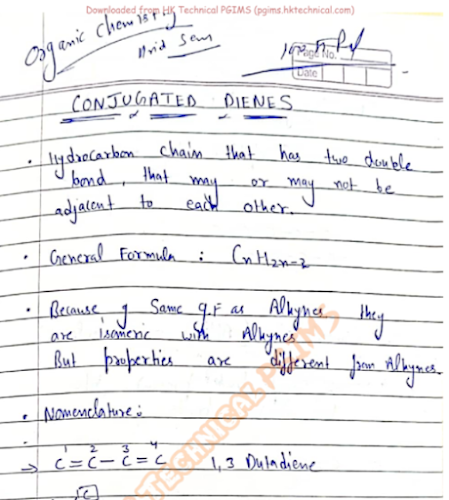 Downloaded from HK Technical PGIMS (pgims.hktechnical.com)
Organic Chemistry
IInd Sem
Page No.
Date
CONJUGATED DIENES
• Hydrocarbon chain that has two double
bond, that may or may not be
adjacent to each other.
• General Formula : CnH2n-2
• Because of Same g.F as Alkynes they
are isomeric with Alkynes
But properties are different from Alkynes.
• Nomenclature:
1 2 3 4
→ C = C - C = C 1,3 Butadiene
C
TECHNICAL PGIMS